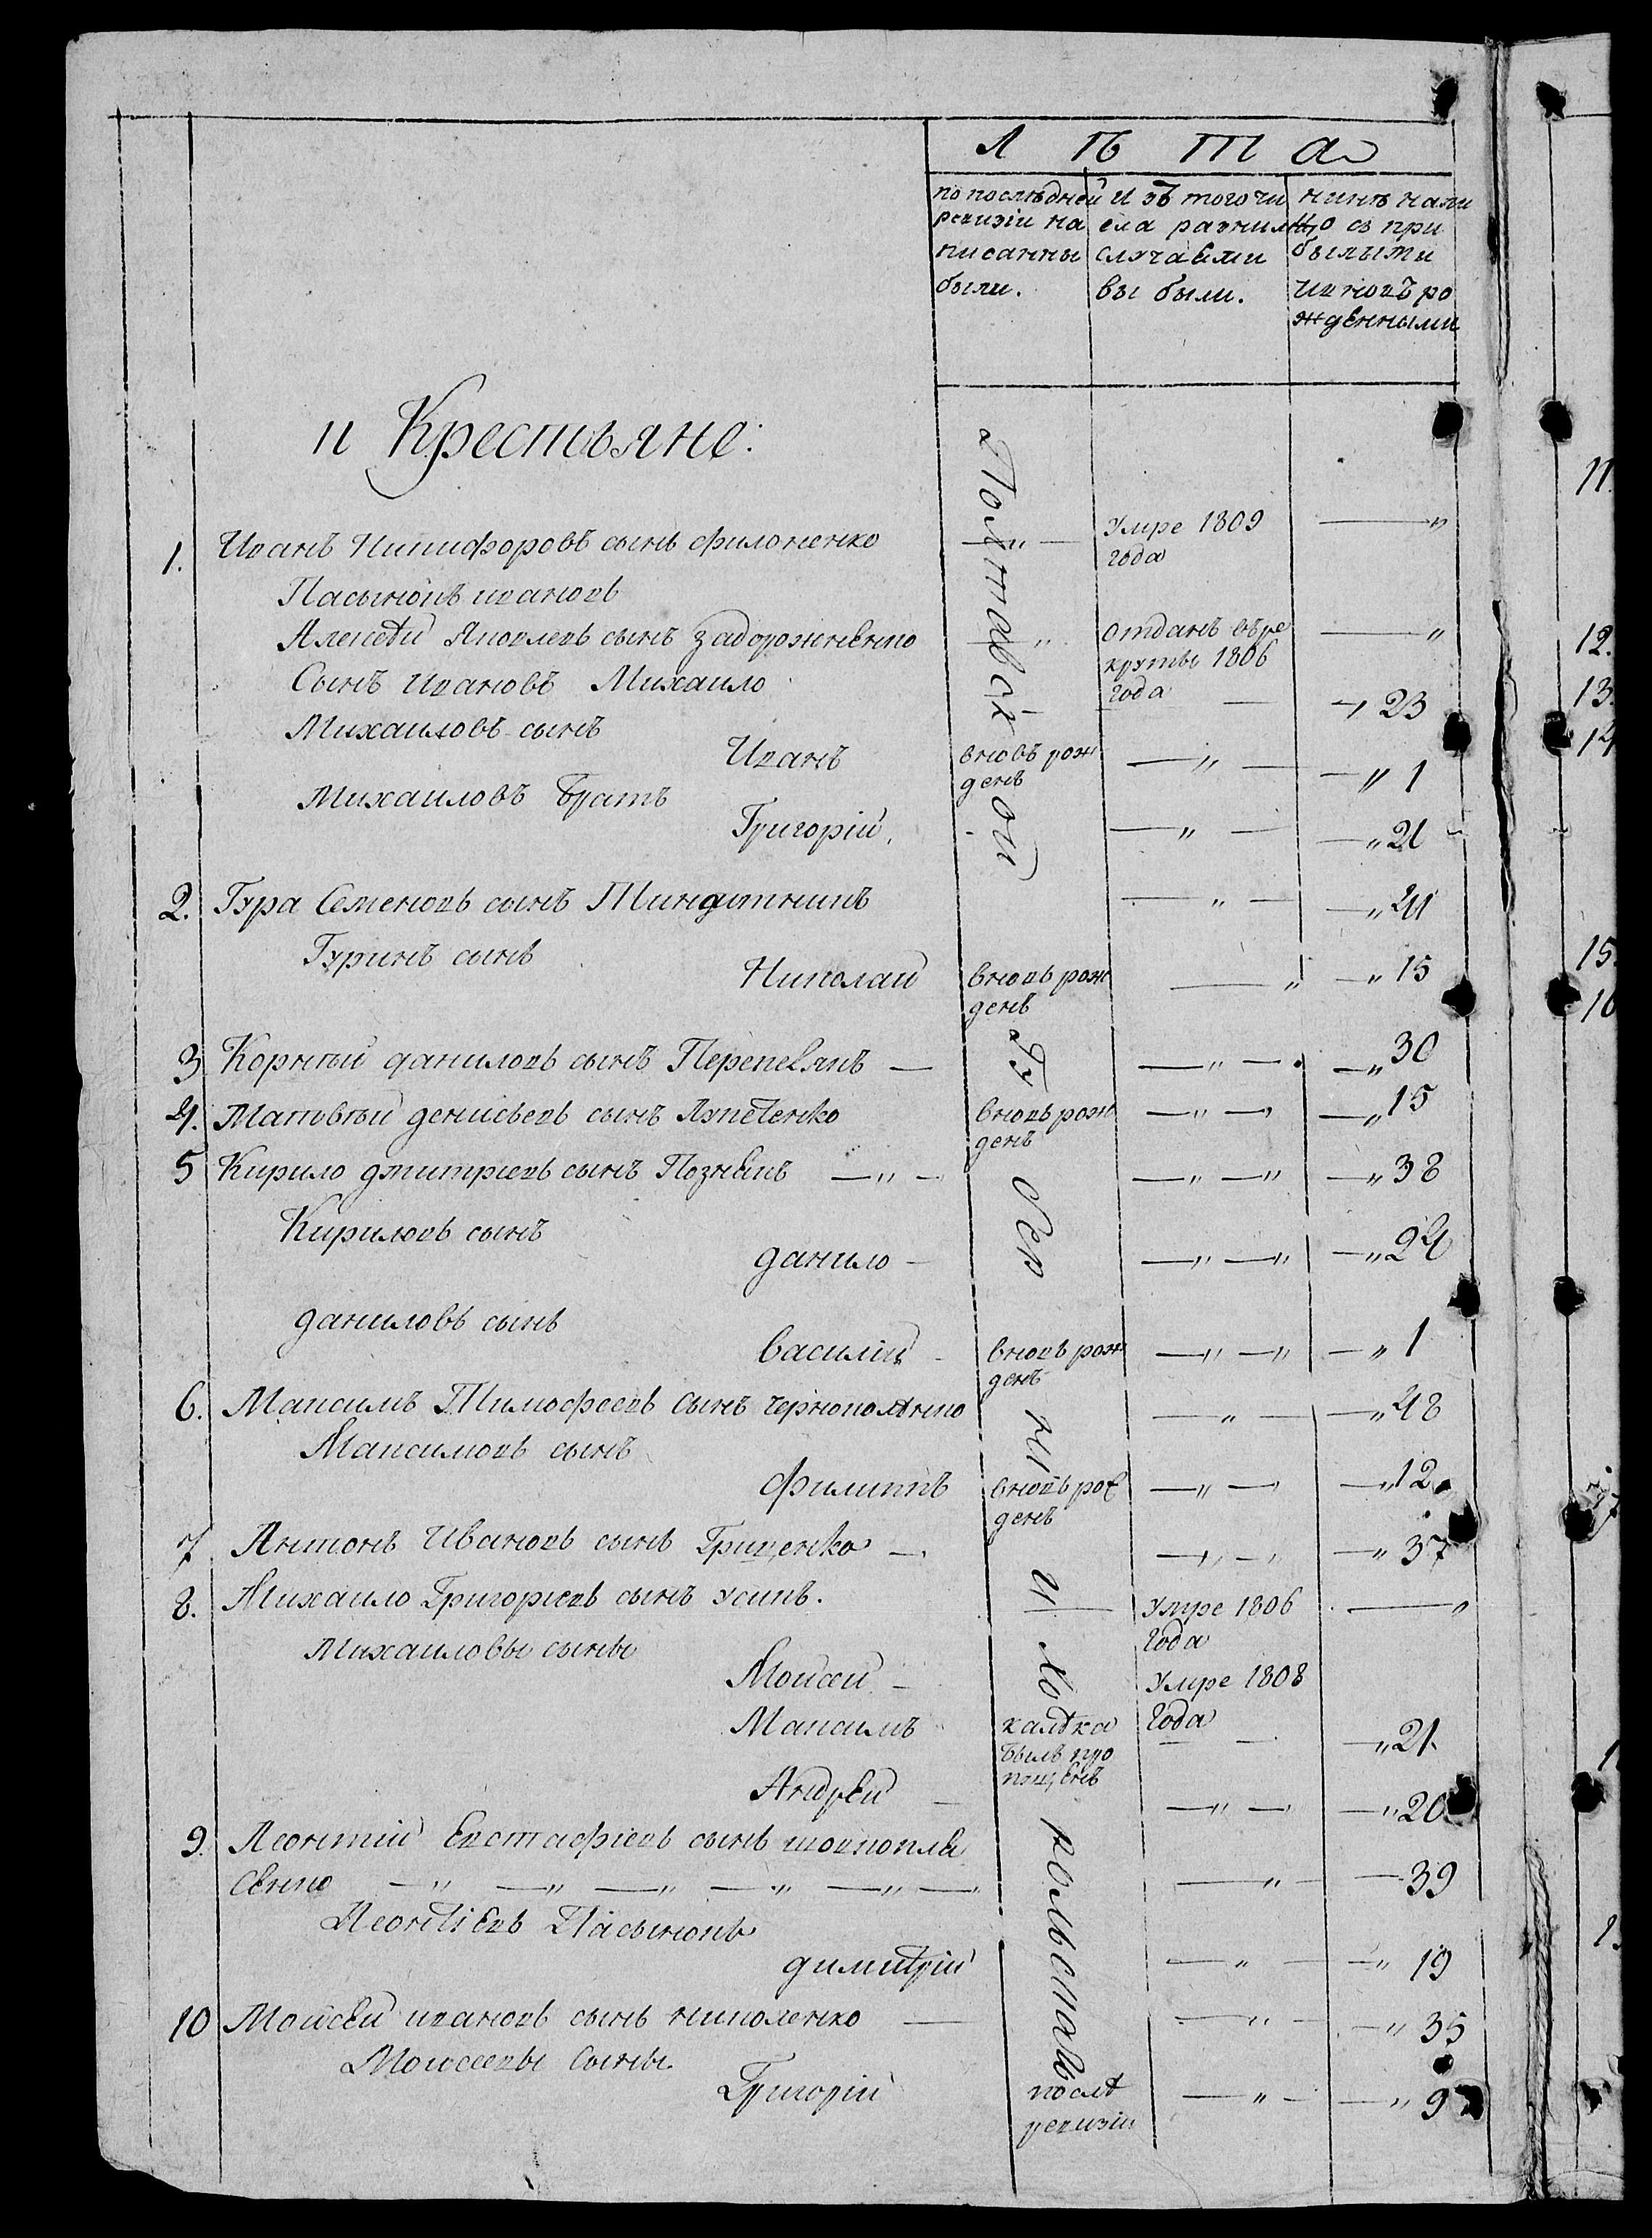 Лѣта
по послѣдней ревизіи написанны были.
И зъ того числа разними случаями выбыли.
Нинѣ налицо съ прибылыми и вновъ рожденными
и Крестьяне:
1. Иванъ Никифоровъ сынъ филоненко — " — Умре 1809 года — "
Пасынокъ ивановъ
Алексѣй Яковлевъ сынъ задорожненко " Отданъ въ рекруты 1806 года — "
Сынъ ивановъ Михаило — " 23
Михаиловъ сынъ
Иванъ вновъ рожденъ — " — — " 1
Михаиловъ братъ
Григорій. — " — — " 21
2. Гура Семеновъ сынъ — " — — " 41
Гуринъ сынъ
Николай вновъ рожденъ — " — " 15
3 Корнѣй даниловъ сынъ — — " — — " 30
4. Матвѣй денисьевъ сынъ вновъ рожденъ — " — — " 15
5 Кирило дмитріевъ сынъ — " — — " — " — " 38
Кириловъ сынъ
данило — — " — " — " 24
даниловъ сынъ
василій вновъ рожденъ — " — " — " 1
6. Максимъ Тимофеевъ сынъ — " — — " 48
Максимовъ сынъ
филиппъ вновъ рожденъ — " — — " 12
7 Антонъ Ивановъ сынъ Гриценко — — " — — " 37
8. Михаило Григориевъ сынъ усикъ. — Умре 1806 года — "
Михаиловы сыны
Моисей — Умре 1808 года
Максимъ калѣка былъ пропущенъ — " 21.
Андрей — — " — — " 20
9. Леонтий Евстафіевъ сынъ
— " — " — " — " — " — — " — — 39
Леонтіевъ Пасынокъ
димитрій — " — — " 19
10 Моисей ивановъ сынъ николенко — — " — — " 35
Моисеевы сыны
Григорій послѣ ревизіи — " — — " 9
Полтавской
Гу
бер
ни
и
Хо
рольскаго
11.
12.
13.
14
15.
16